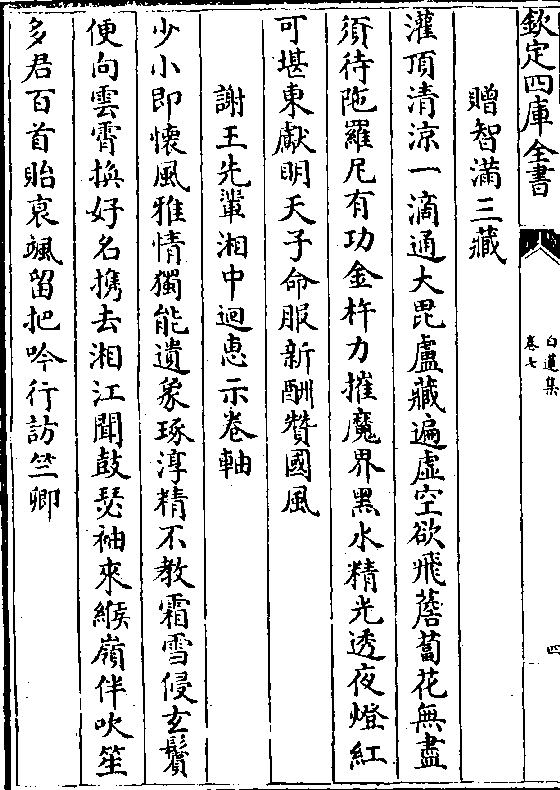 欽定四庫全書
白蓮集
卷七
四
贈智滿三藏
灌頂清涼一滴通大毘盧藏遍虛空欲飛薝蔔花無盡
須待陁羅尼有功金杵力摧魔界黑水精光透夜燈紅
可堪東獻明天子命服新酬贊國風
謝王先輩湘中迴惠示卷軸
少小即懷風雅情獨能遺象琢淳精不教霜雪侵玄鬢
便向雲霄換好名携去湘江聞鼓瑟袖來緱嶺伴吹笙
多君百首貽衰颯留把吟行訪竺卿